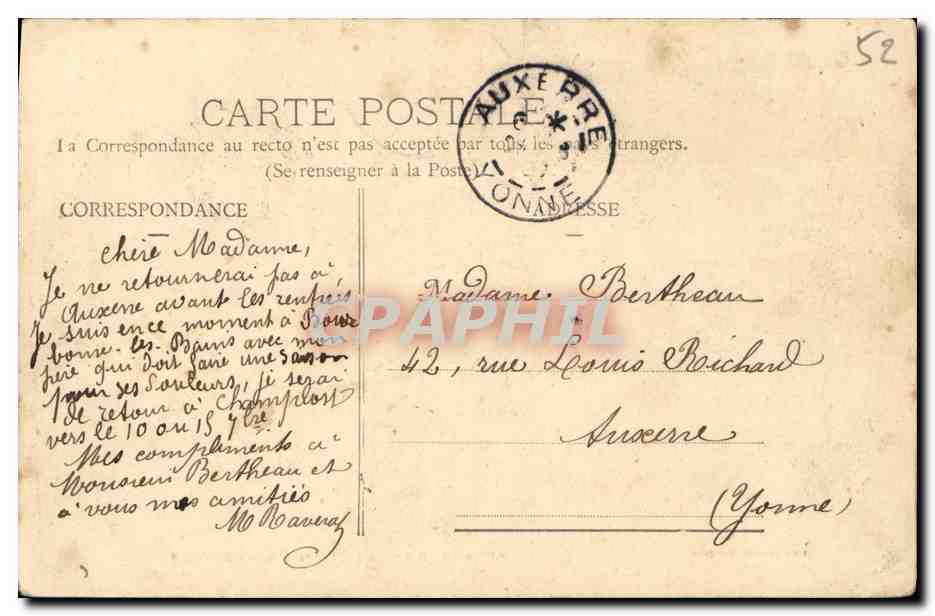 52
CARTE POSTALE
La Correspondance au recto n'est pas acceptée par tous les pays étrangers.
(Se renseigner à la Poste)
AUXERRE
YONNE
CORRESPONDANCE
chère Madame,
Je ne retournerai pas à
Auxerre avant les rentrées
Je suis en ce moment à Bour
bonne-les-Bains avec mon
père qui doit faire une saison
pour ses douleurs, je serai
de retour à Champlost
vers le 10 ou 15 7bre
Mes compliments à
Monsieur Bertheau et
à vous mes amitiés
M Raverat
ADRESSE
Madame Bertheau
42, rue Louis Richard
Auxerre
(Yonne)
PAPHIL